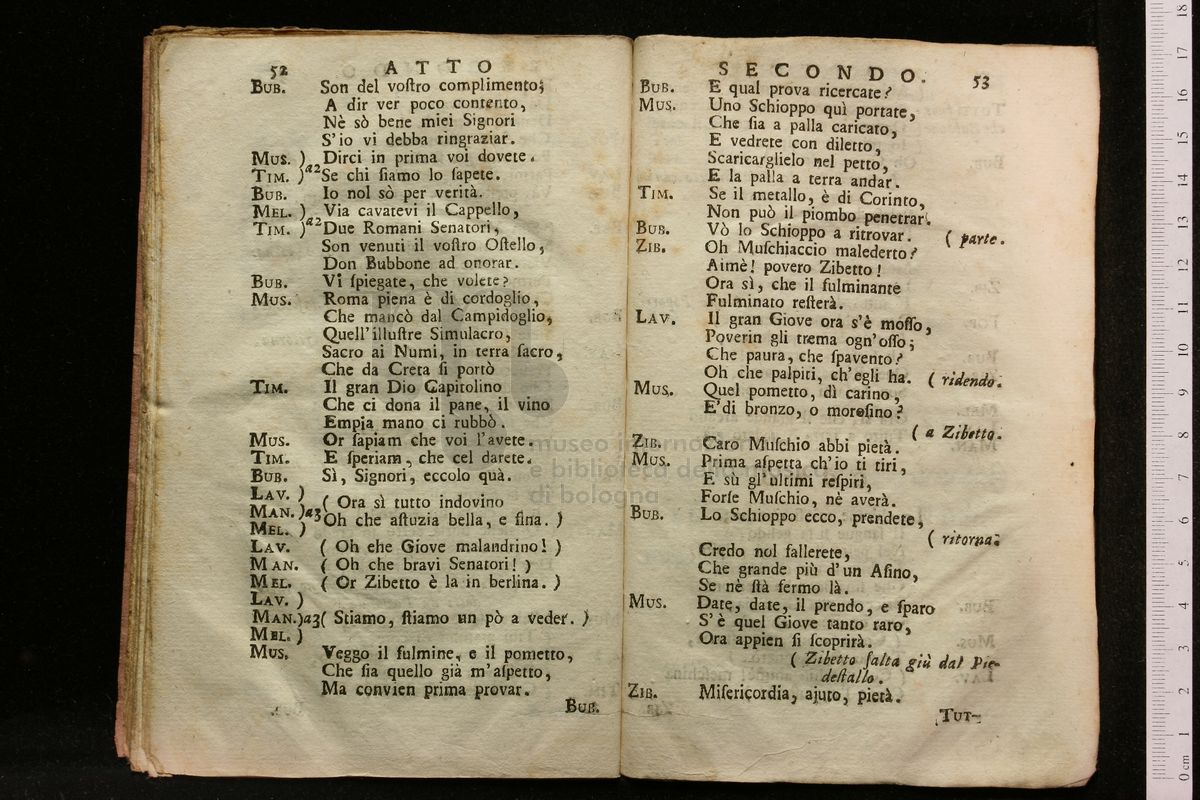 52 ATTO
BUB. Son del voſtro complimento;
A dir ver poco contento,
Nè sò bene miei Signori
S'io vi debba ringraziar.
MUS. ) Dirci in prima voi dovete.
TIM. )a2 Se chi ſiamo lo ſapete.
BUB. Io nol sò per verità.
MEL. ) Via cavatevi il Cappello,
TIM. )a2 Due Romani Senatori,
Son venuti il voſtro Oſtello,
Don Bubbone ad onorar.
BUB. Vi ſpiegate, che volete?
MUS. Roma piena è di cordoglio,
Che mancò dal Campidoglio,
Quell'illuſtre Simulacro,
Sacro ai Numi, in terra ſacro,
Che da Creta ſi portò
TIM. Il gran Dio Capitolino
Che ci dona il pane, il vino
Empia mano ci rubbò.
MUS. Or ſapiam che voi l'avete.
TIM. E ſperiam, che cel darete.
BUB. Sì, Signori, eccolo quà.
LAV. )
( Ora sì tutto indovino
MAN. )a3
Oh che aſtuzia bella, e fina. )
MEL. )
LAV. ( Oh ehe Giove malandrino! )
MAN. ( Oh che bravi Senatori! )
MEL. ( Or Zibetto è la in berlina. )
LAV. )
MAN.)a3 ( Stiamo, ſtiamo un pò a veder. )
MEL. )
MUS. Veggo il fulmine, e il pometto,
Che ſia quello già m'aſpetto,
Ma convien prima provar.
BUB.
SECONDO. 53
BUB. E qual prova ricercate?
MUS. Uno Schioppo quì portate,
Che ſia a palla caricato,
E vedrete con diletto,
Scaricarglielo nel petto,
E la palla a terra andar.
TIM. Se il metallo, è di Corinto,
Non può il piombo penetrar.
BUB. Vò lo Schioppo a ritrovar. ( parte.
ZIB. Oh Muſchiaccio malederto?
Aimè! povero Zibetto!
Ora sì, che il fulminante
Fulminato reſterà.
LAV. Il gran Giove ora s'è moſſo,
Poverin gli trema ogn'oſſo;
Che paura, che ſpavento?
Oh che palpiti, ch'egli ha. ( ridendo.
MUS. Quel pometto, dì carino,
E' di bronzo, o moroſino?
( a Zibetto.
ZIB. Caro Muſchio abbi pietà.
MUS. Prima aſpetta ch'io ti tiri,
E sù gl'ultimi reſpiri,
Forſe Muſchio, nè averà.
BUB. Lo Schioppo ecco, prendete,
( ritorna.
Credo nol fallerete,
Che grande più d'un Aſino,
Se nè ſtà fermo là.
MUS. Date, date, il prendo, e ſparo
S'è quel Giove tanto raro,
Ora appien ſi ſcoprirà.
( Zibetto ſalta giù dal Pie-
deſtallo.
ZIB. Miſericordia, ajuto, pietà.
TUT-
museo
e biblioteca della
di bologna
0 cm 1 2 3 4 5 6 7 8 9 10 11 12 13 14 15 16 17 18